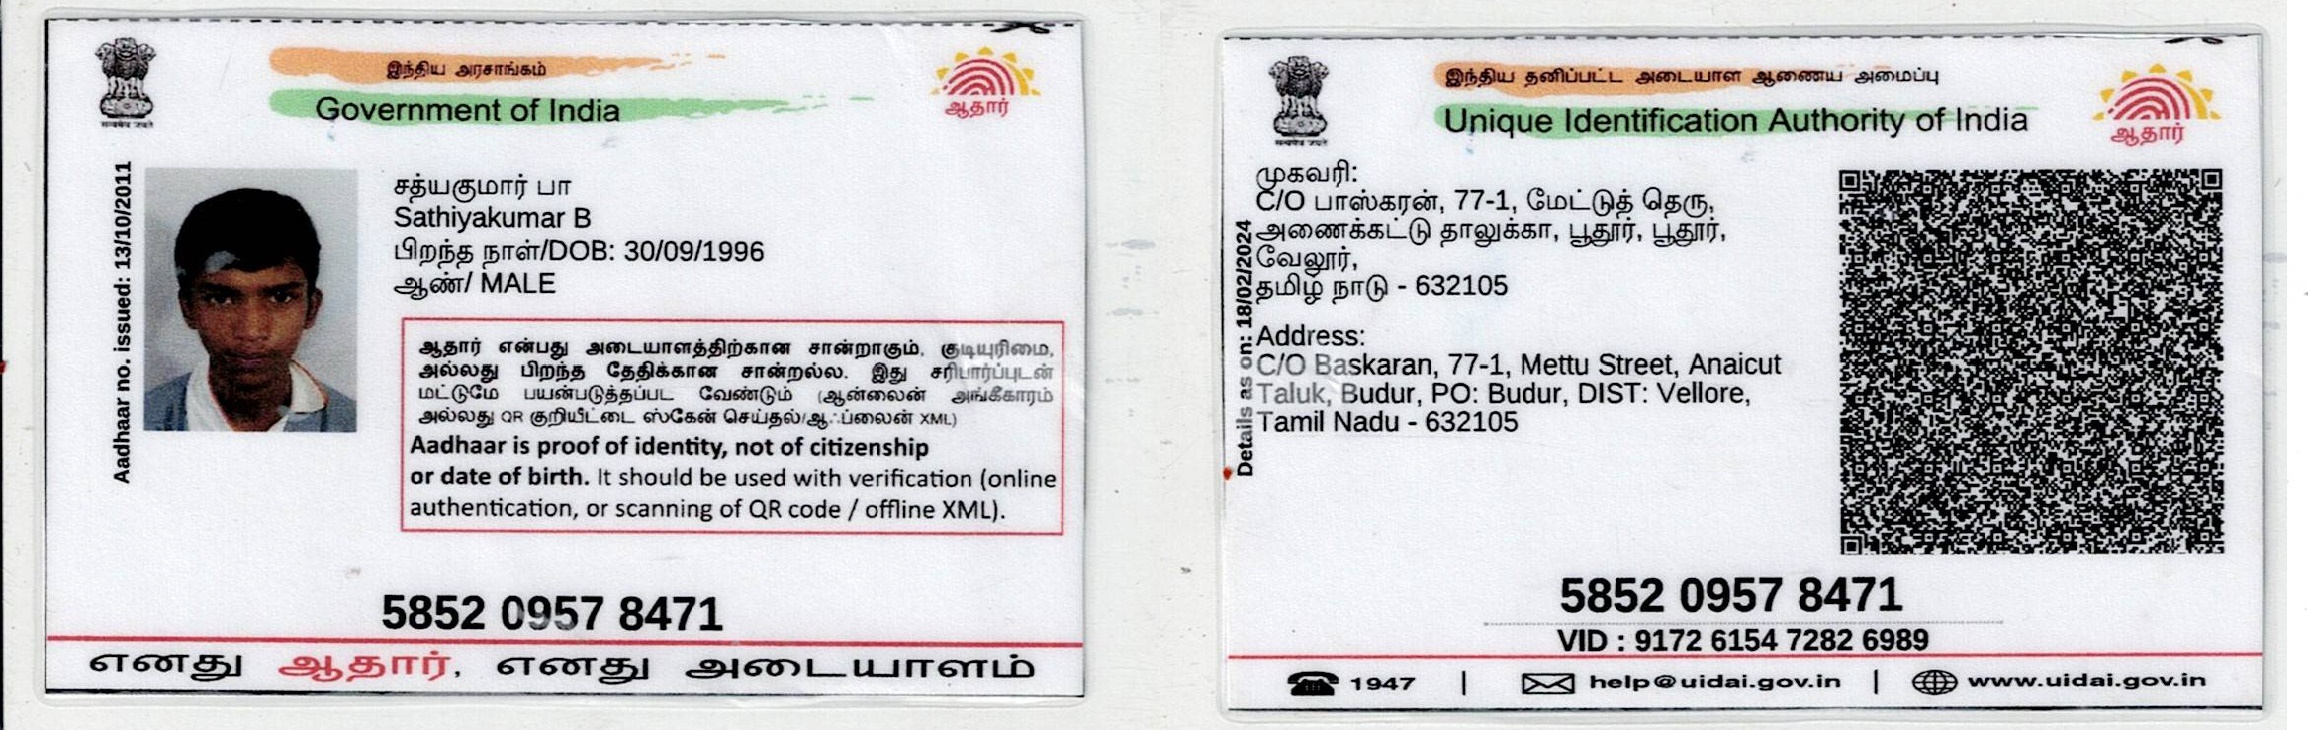 இந்திய அரசாங்கம்
Government of India
ஆதார்
सत्यमेव जयते
Aadhaar no. issued: 13/10/2011
சத்யகுமார் பா
Sathiyakumar B
பிறந்த நாள்/DOB: 30/09/1996
ஆண்/ MALE
ஆதார் என்பது அடையாளத்திற்கான சான்றாகும், குடியுரிமை,
அல்லது பிறந்த தேதிக்கான சான்றல்ல. இது சரிபார்ப்புடன்
மட்டுமே பயன்படுத்தப்பட வேண்டும் (ஆன்லைன் அங்கீகாரம்
அல்லது QR குறியீட்டை ஸ்கேன் செய்தல்/ஆஃப்லைன் XML)
Aadhaar is proof of identity, not of citizenship
or date of birth. It should be used with verification (online
authentication, or scanning of QR code / offline XML).
5852 0957 8471
எனது ஆதார், எனது அடையாளம்
இந்திய தனிப்பட்ட அடையாள ஆணைய அமைப்பு
Unique Identification Authority of India
ஆதார்
सत्यमेव जयते
Details as on: 18/02/2024
முகவரி:
C/O பாஸ்கரன், 77-1, மேட்டுத் தெரு,
அணைக்கட்டு தாலுக்கா, பூதூர், பூதூர்,
வேலூர்,
தமிழ் நாடு - 632105
Address:
C/O Baskaran, 77-1, Mettu Street, Anaicut
Taluk, Budur, PO: Budur, DIST: Vellore,
Tamil Nadu - 632105
5852 0957 8471
VID : 9172 6154 7282 6989
1947 | help@uidai.gov.in | www.uidai.gov.in